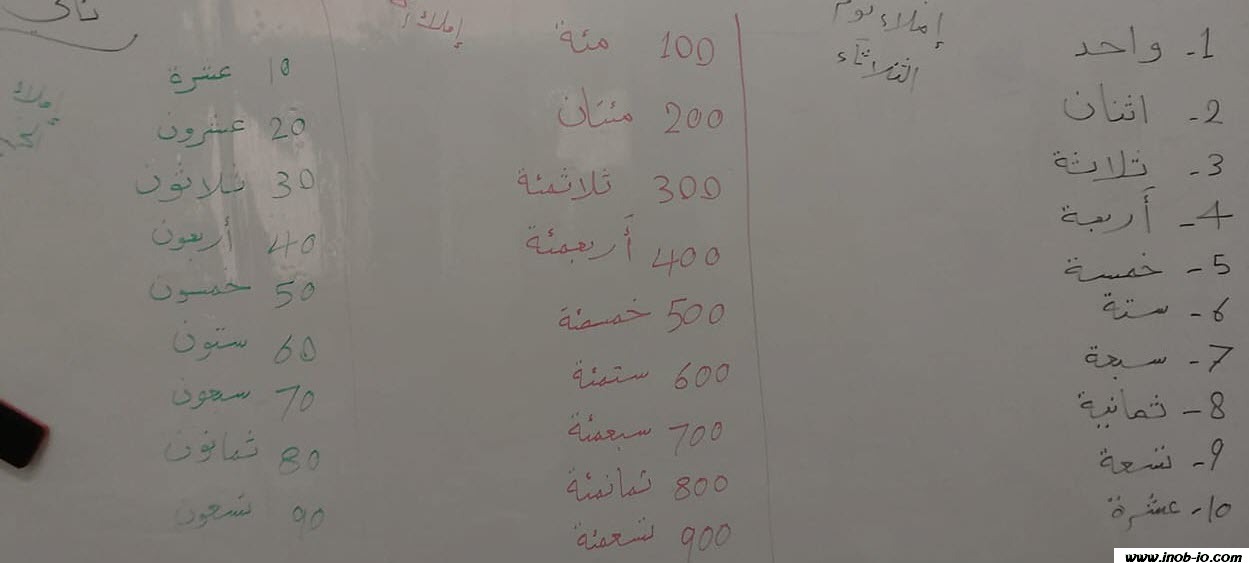 إملاء يوم
الثلاثاء
1- واحد
2- اثنان
3- ثلاثة
4- أربعة
5- خمسة
6- ستة
7- سبعة
8- ثمانية
9- تسعة
10- عشرة
إملاء
100 مئة
200 مئتان
300 ثلاثمئة
400 أربعمئة
500 خمسمئة
600 ستمئة
700 سبعمئة
800 ثمانمئة
900 تسعمئة
إملاء
10 عشرة
20 عشرون
30 ثلاثون
40 أربعون
50 خمسون
60 ستون
70 سبعون
80 ثمانون
90 تسعون
www.jnob-jo.com